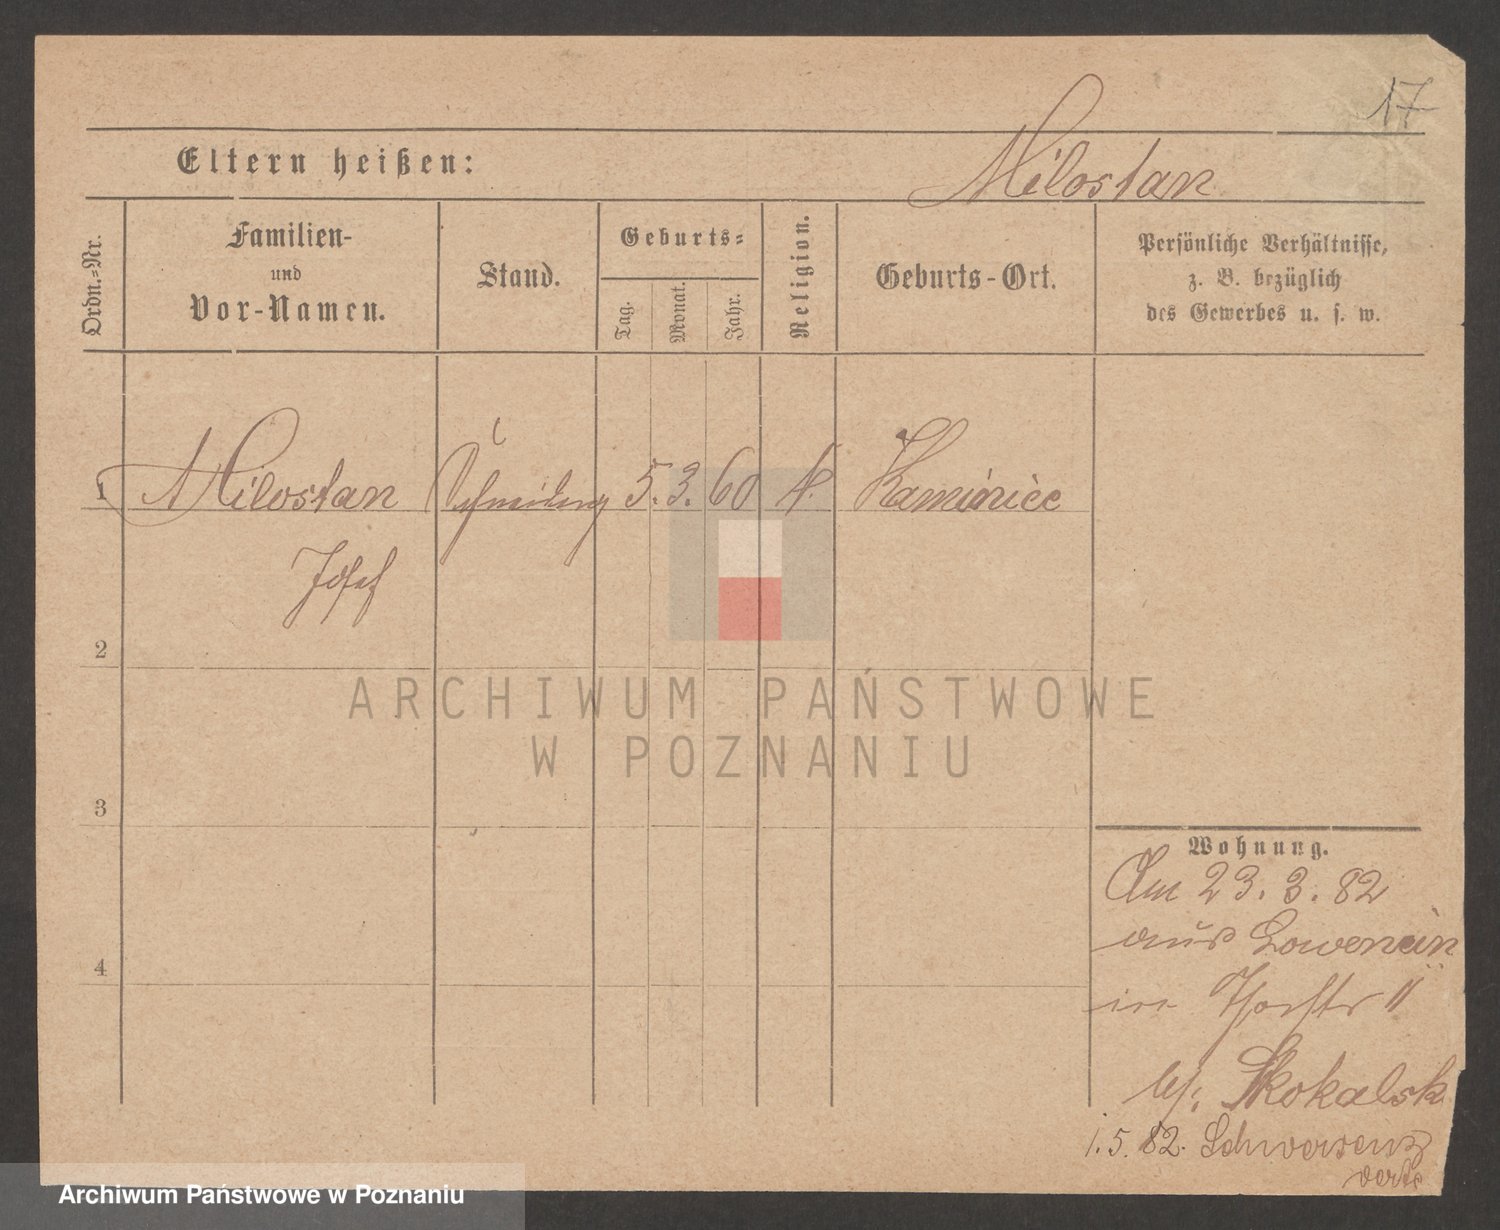 17
Eltern heißen:
Milostan
Ordn.=Nr.
Familien-
und
Vor-Namen.
Stand.
Geburts=
Tag.
Monat.
Jahr.
Religion.
Geburts-Ort.
Persönliche Verhältnisse,
z. B. bezüglich
des Gewerbes u. s. w.
1 Milostan 5. 3. 60 k.
Josef
2
ARCHIWUM PAŃSTWOWE
W POZNANIU
3
4
Wohnung.
Am 23. 3. 82
aus
in 11
bei Skokalsk
1.5.82. Schwersenz
Archiwum Państwowe w Poznaniu